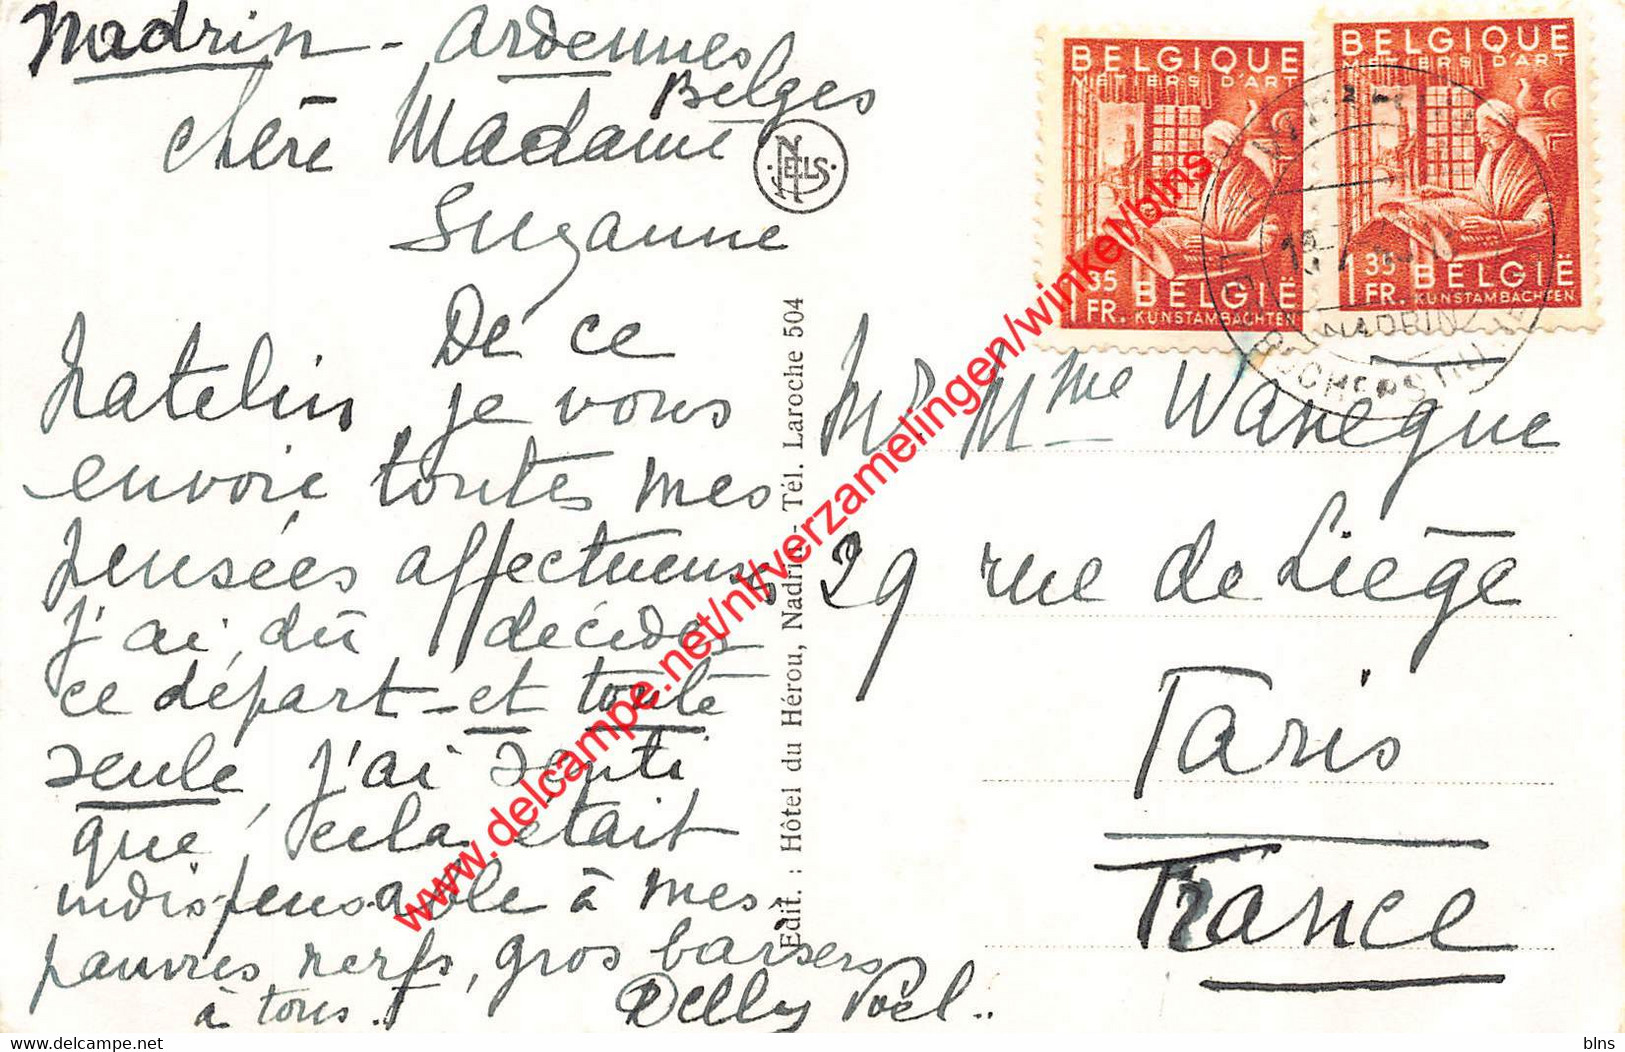 Madrin - Ardennes
Belges
chère Madame
Suzanne
De ce
patelin je vous
envoie toutes mes
pensées affectueuses
J'ai dû décider
ce départ - et toute
seule, j'ai senti
que cela était
indispensable à mes
pauvres nerfs, gros baisers
à tous.
NELS
Edit. : Hôtel du Hérou, Nadrin - Tél. Laroche 504
BELGIQUE
METIERS D'ART
1 FR. 35 BELGIË
KUNSTAMBACHTEN
BELGIQUE
METIERS D'ART
1 FR. 35 BELGIË
KUNSTAMBACHTEN
NADRIN
ROCHERS DU
Mr Mme Wanegue
29 rue de Liège
Paris
France
www.delcampe.net/nl/verzamelingen/winkel/blns
www.delcampe.net
blns